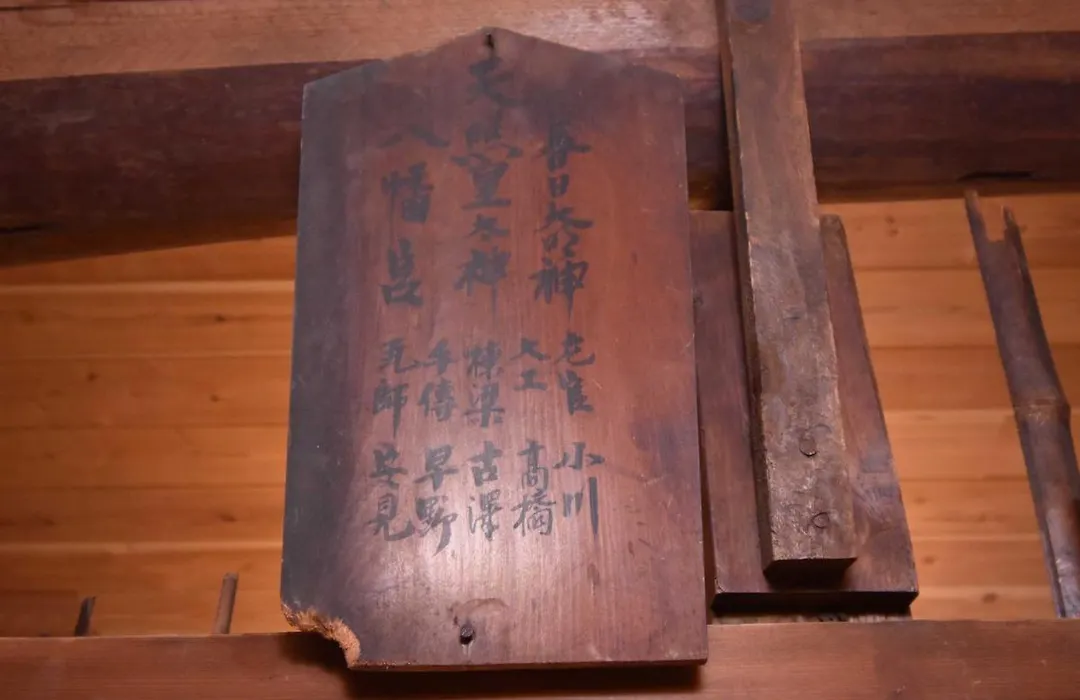 春日大明神
天照皇太神
八幡宮
小川
大工 高橋
棟梁 古澤
手傳 早野
瓦師 安見